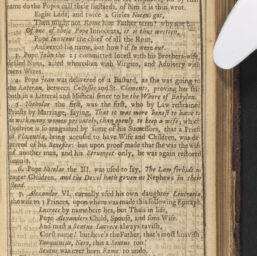 same do the Popes call their Bastards, of him it is thus wrot.
Eight Lads, and twice 4 Girles Nocent got,
Then might not Rome him Father term? why not?
Of one of these, Pope Innocents, it is thus written,
Pope Innocent the chief of all the Rout,
Answered his name, but how? In were out.
3. Pope John the 12 committed Incest with his Brothers-wife,
Nuns, acted whoredom with Virgins, and Adultery with
mens Wives.
4. Pope Joan was delivered of a Bastard, as she was going to
the Lateran, between and St. Clements, proving her self
both in a Literal and Mystical sense to be the Whore of Babylon.
5. Nicholas the first, was the first, who by Law restrained
Priests by Marriage, saying, That it was more honest to have to
do with many women privately, then openly to keep a wife; which
Doctrine is so maintained by some of his Successors, that a Priest
of Placentia, being accused to have Wife and Children, was de-
prived of his Benefice: but upon proof made that she was the wife
of another man, and his Strumpet only, he was again restored
again.
6. Pope Nicolas the III. was used to say, The Law forbids
Children, and the Devil hath given us Nephews in their
7. Alexander VI, carnally used his own daughter Lucretia,
she was to 3 Princes, upon whom was made this following Epitaph:
Lucrece by name here lies, but Thais in life,
Pope Alexanders Child, Spouse, and sons Wife.
And must a Sextus Lucrece always ravish,
Curst name! but here's the Father, that's most lavish;
Tarquinius, Nero, this a Sextus too!
Sextus was ever born Rome to undo.